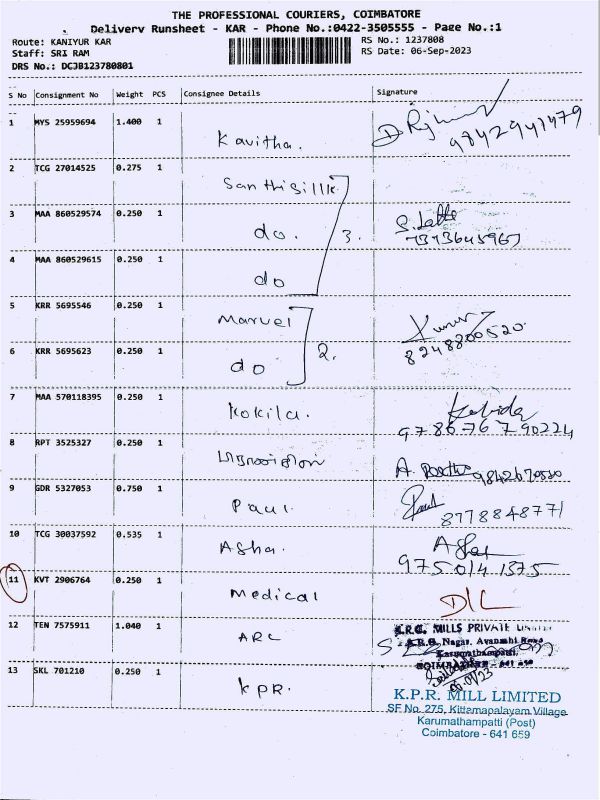 THE PROFESSIONAL COURIERS, COIMBATORE
Delivery Runsheet - KAR - Phone No.:0422-3505555 - Page No.:1
Route: KANIYUR KAR
RS No.: 1237808
Staff: SRI RAM
RS Date: 06-Sep-2023
DRS No.: DCJB123780801
S No Consignment No Weight PCS Consignee Details Signature
1 MYS 25959694 1.400 1 Kavitha. 9842941479
2 TCG 27014525 0.275 1 Santhi
3 MAA 860529574 0.250 1 do. 3.
4 MAA 860529615 0.250 1 do
5 KRR 5695546 0.250 1 Marvel 8248800520
6 KRR 5695623 0.250 1 do 2.
7 MAA 570118395 0.250 1 Kokila.
8 RPT 3525327 0.250 1
9 GDR 5327053 0.750 1 Paul. 8778848771
10 TCG 30037592 0.535 1 Asha. 9750141375
11 KVT 2906764 0.250 1 Medical D/L
12 TEN 7575911 1.040 1 ARC
MILLS PRIVATE
Nagar, Avanashi Road
Karumathampatti,
COIMBATORE
13 SKL 701210 0.250 1 KPR.
K.P.R. MILL LIMITED
SF No. 275, Kittampalayam Village
Karumathampatti (Post)
Coimbatore - 641 659